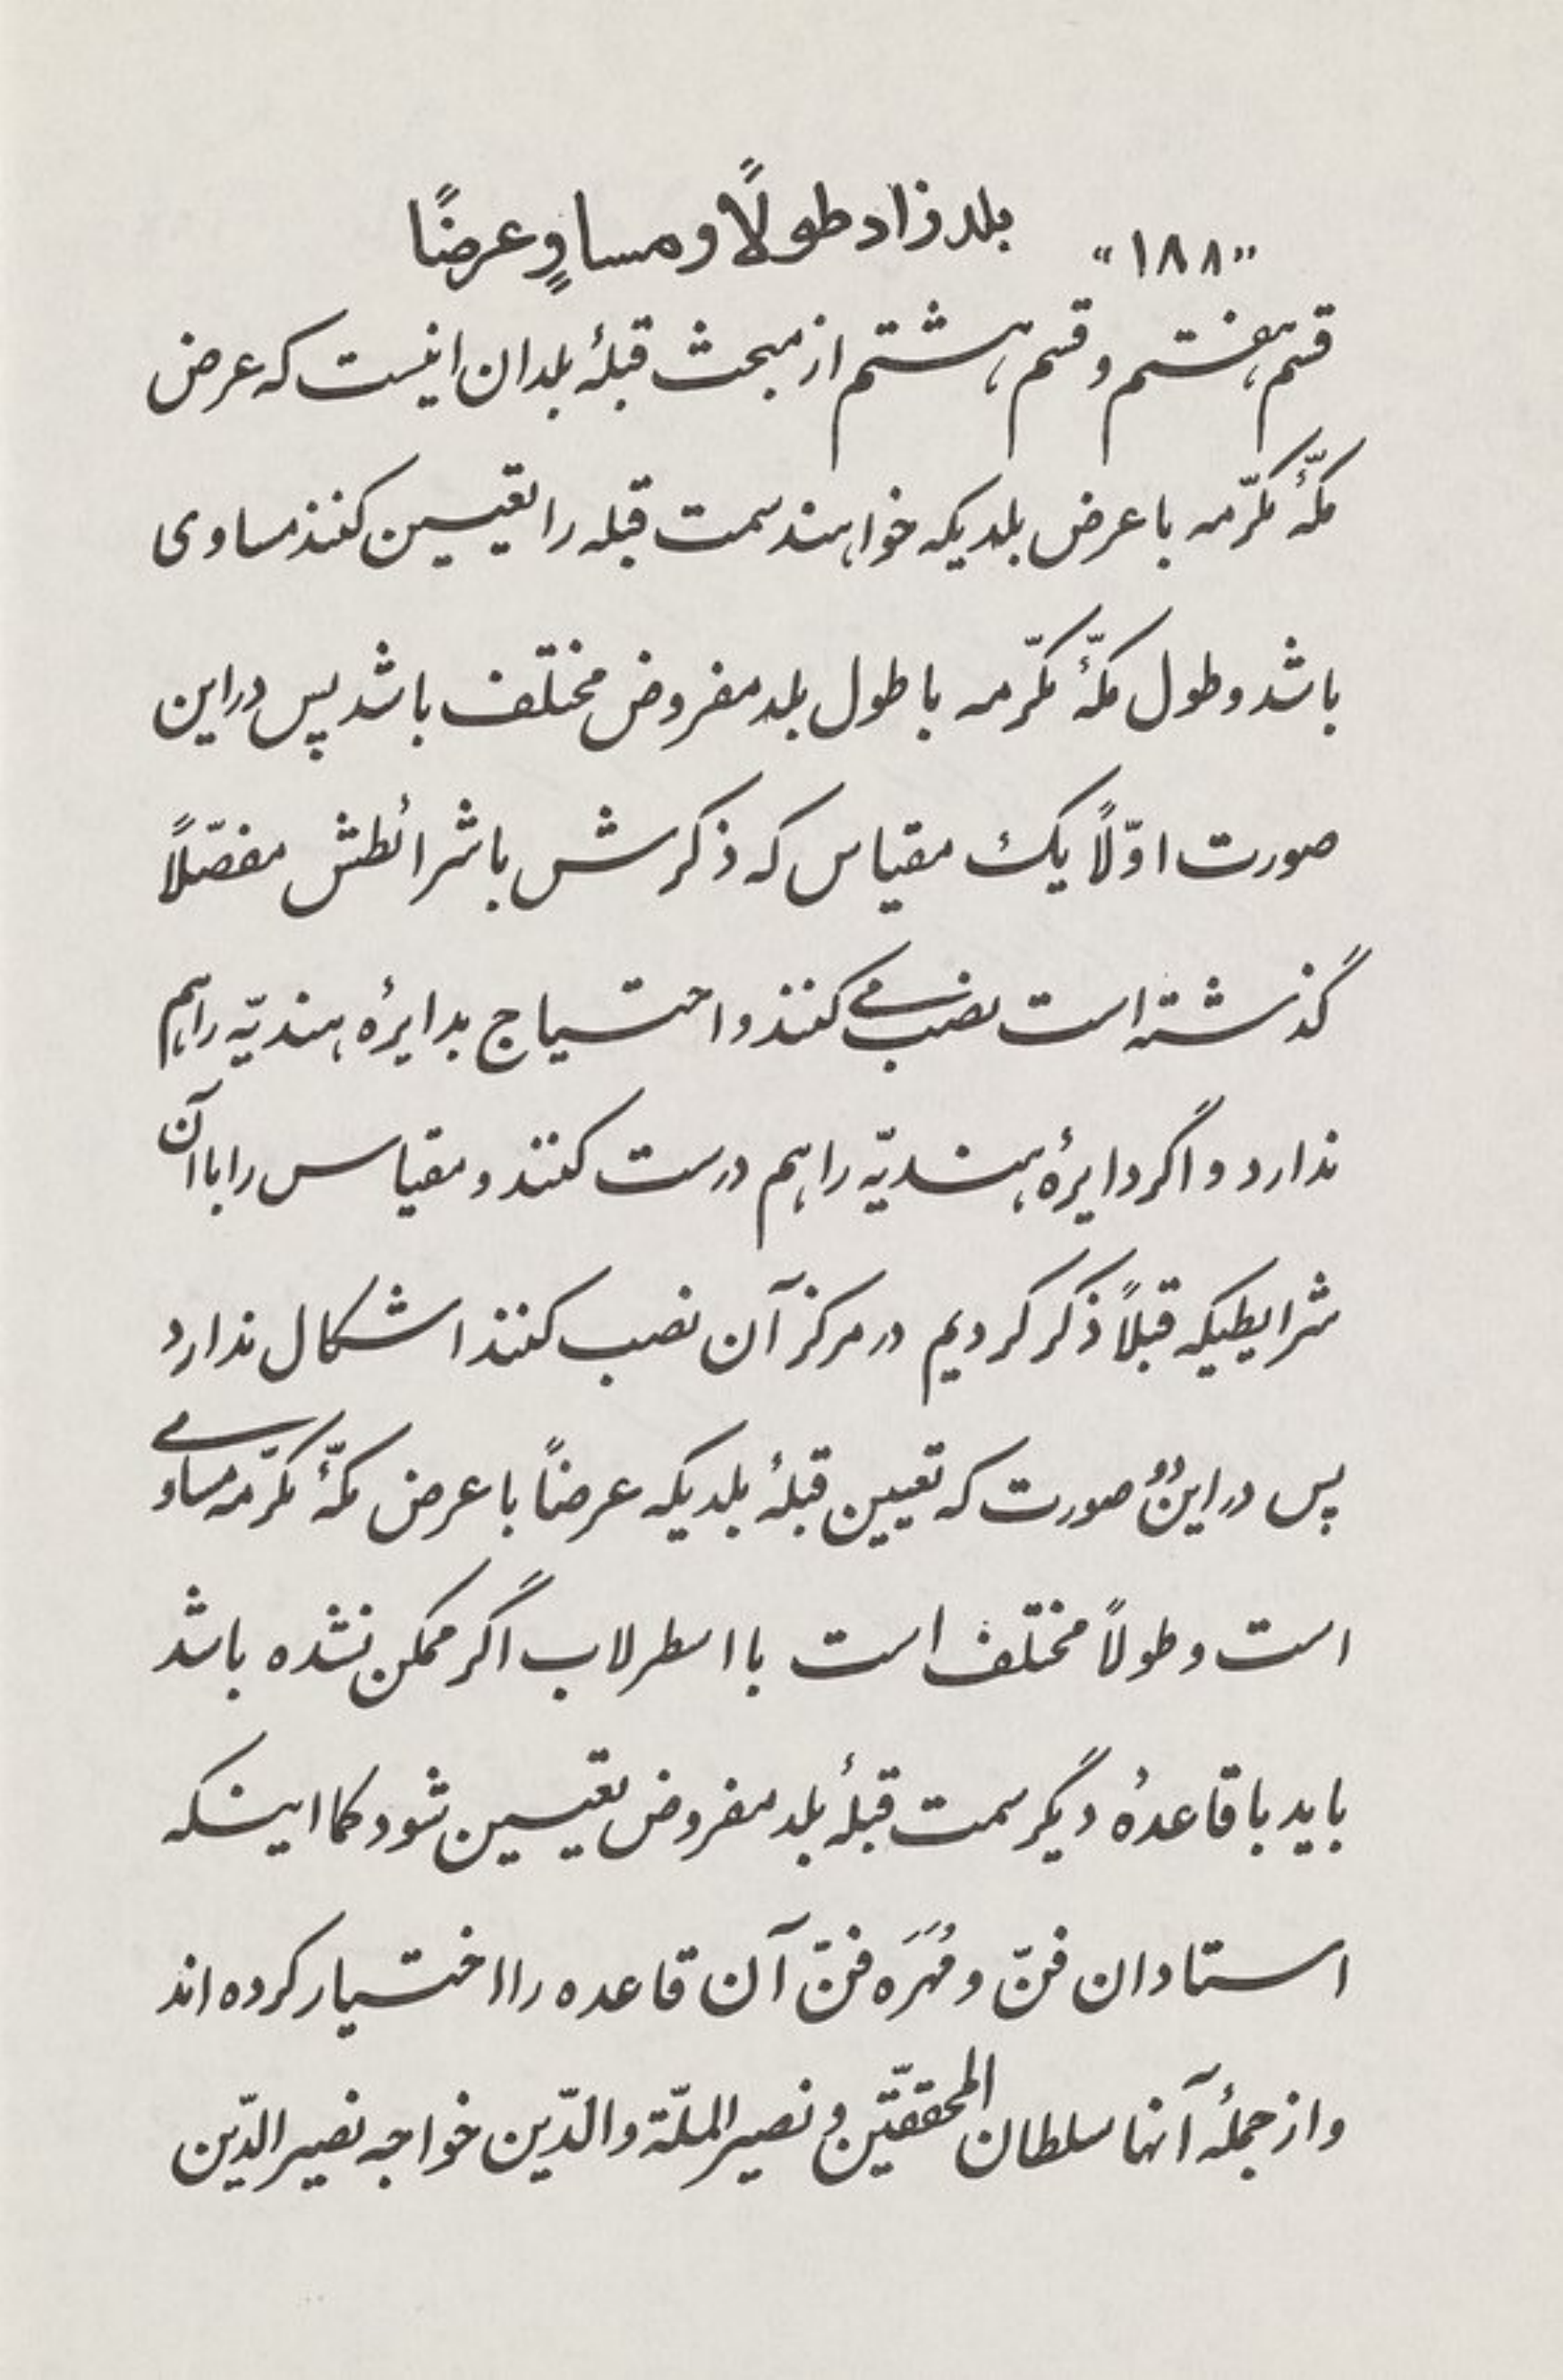 «۱۸۸» بلد زاد طولًا و مساوٍ عرضًا
قسم هفتم و قسم هشتم از مبحث قبلهٔ بلدان اینست که عرض
مکّهٔ مکرّمه با عرض بلدیکه خواهند سمت قبله را تعیین کنند مساوی
باشد و طول مکّهٔ مکرّمه با طول بلد مفروض مختلف باشد پس در این
صورت اوّلاً یک مقیاس که ذکرش با شرائطش مفصّلاً
گذشته است نصب می کنند و احتیاج بدایرهٔ هندیّه را هم
ندارد و اگر دایرهٔ هندیّه را هم درست کنند و مقیاس را با آن
شرایطیکه قبلاً ذکر کردیم در مرکز آن نصب کنند اشکال ندارد
پس در این دو صورت که تعیین قبلهٔ بلدیکه عرضاً با عرض مکّهٔ مکرّمه مساوی
است و طولاً مختلف است با اسطرلاب اگر ممکن نشده باشد
باید با قاعدهٔ دیگر سمت قبلهٔ بلد مفروض تعیین شود کما اینکه
استادان فنّ و مُهَرَه فنّ آن قاعده را اختیار کرده اند
و از جملهٔ آنها سلطان المحقّقین و نصیر الملّة والدّین خواجه نصیر الدّین